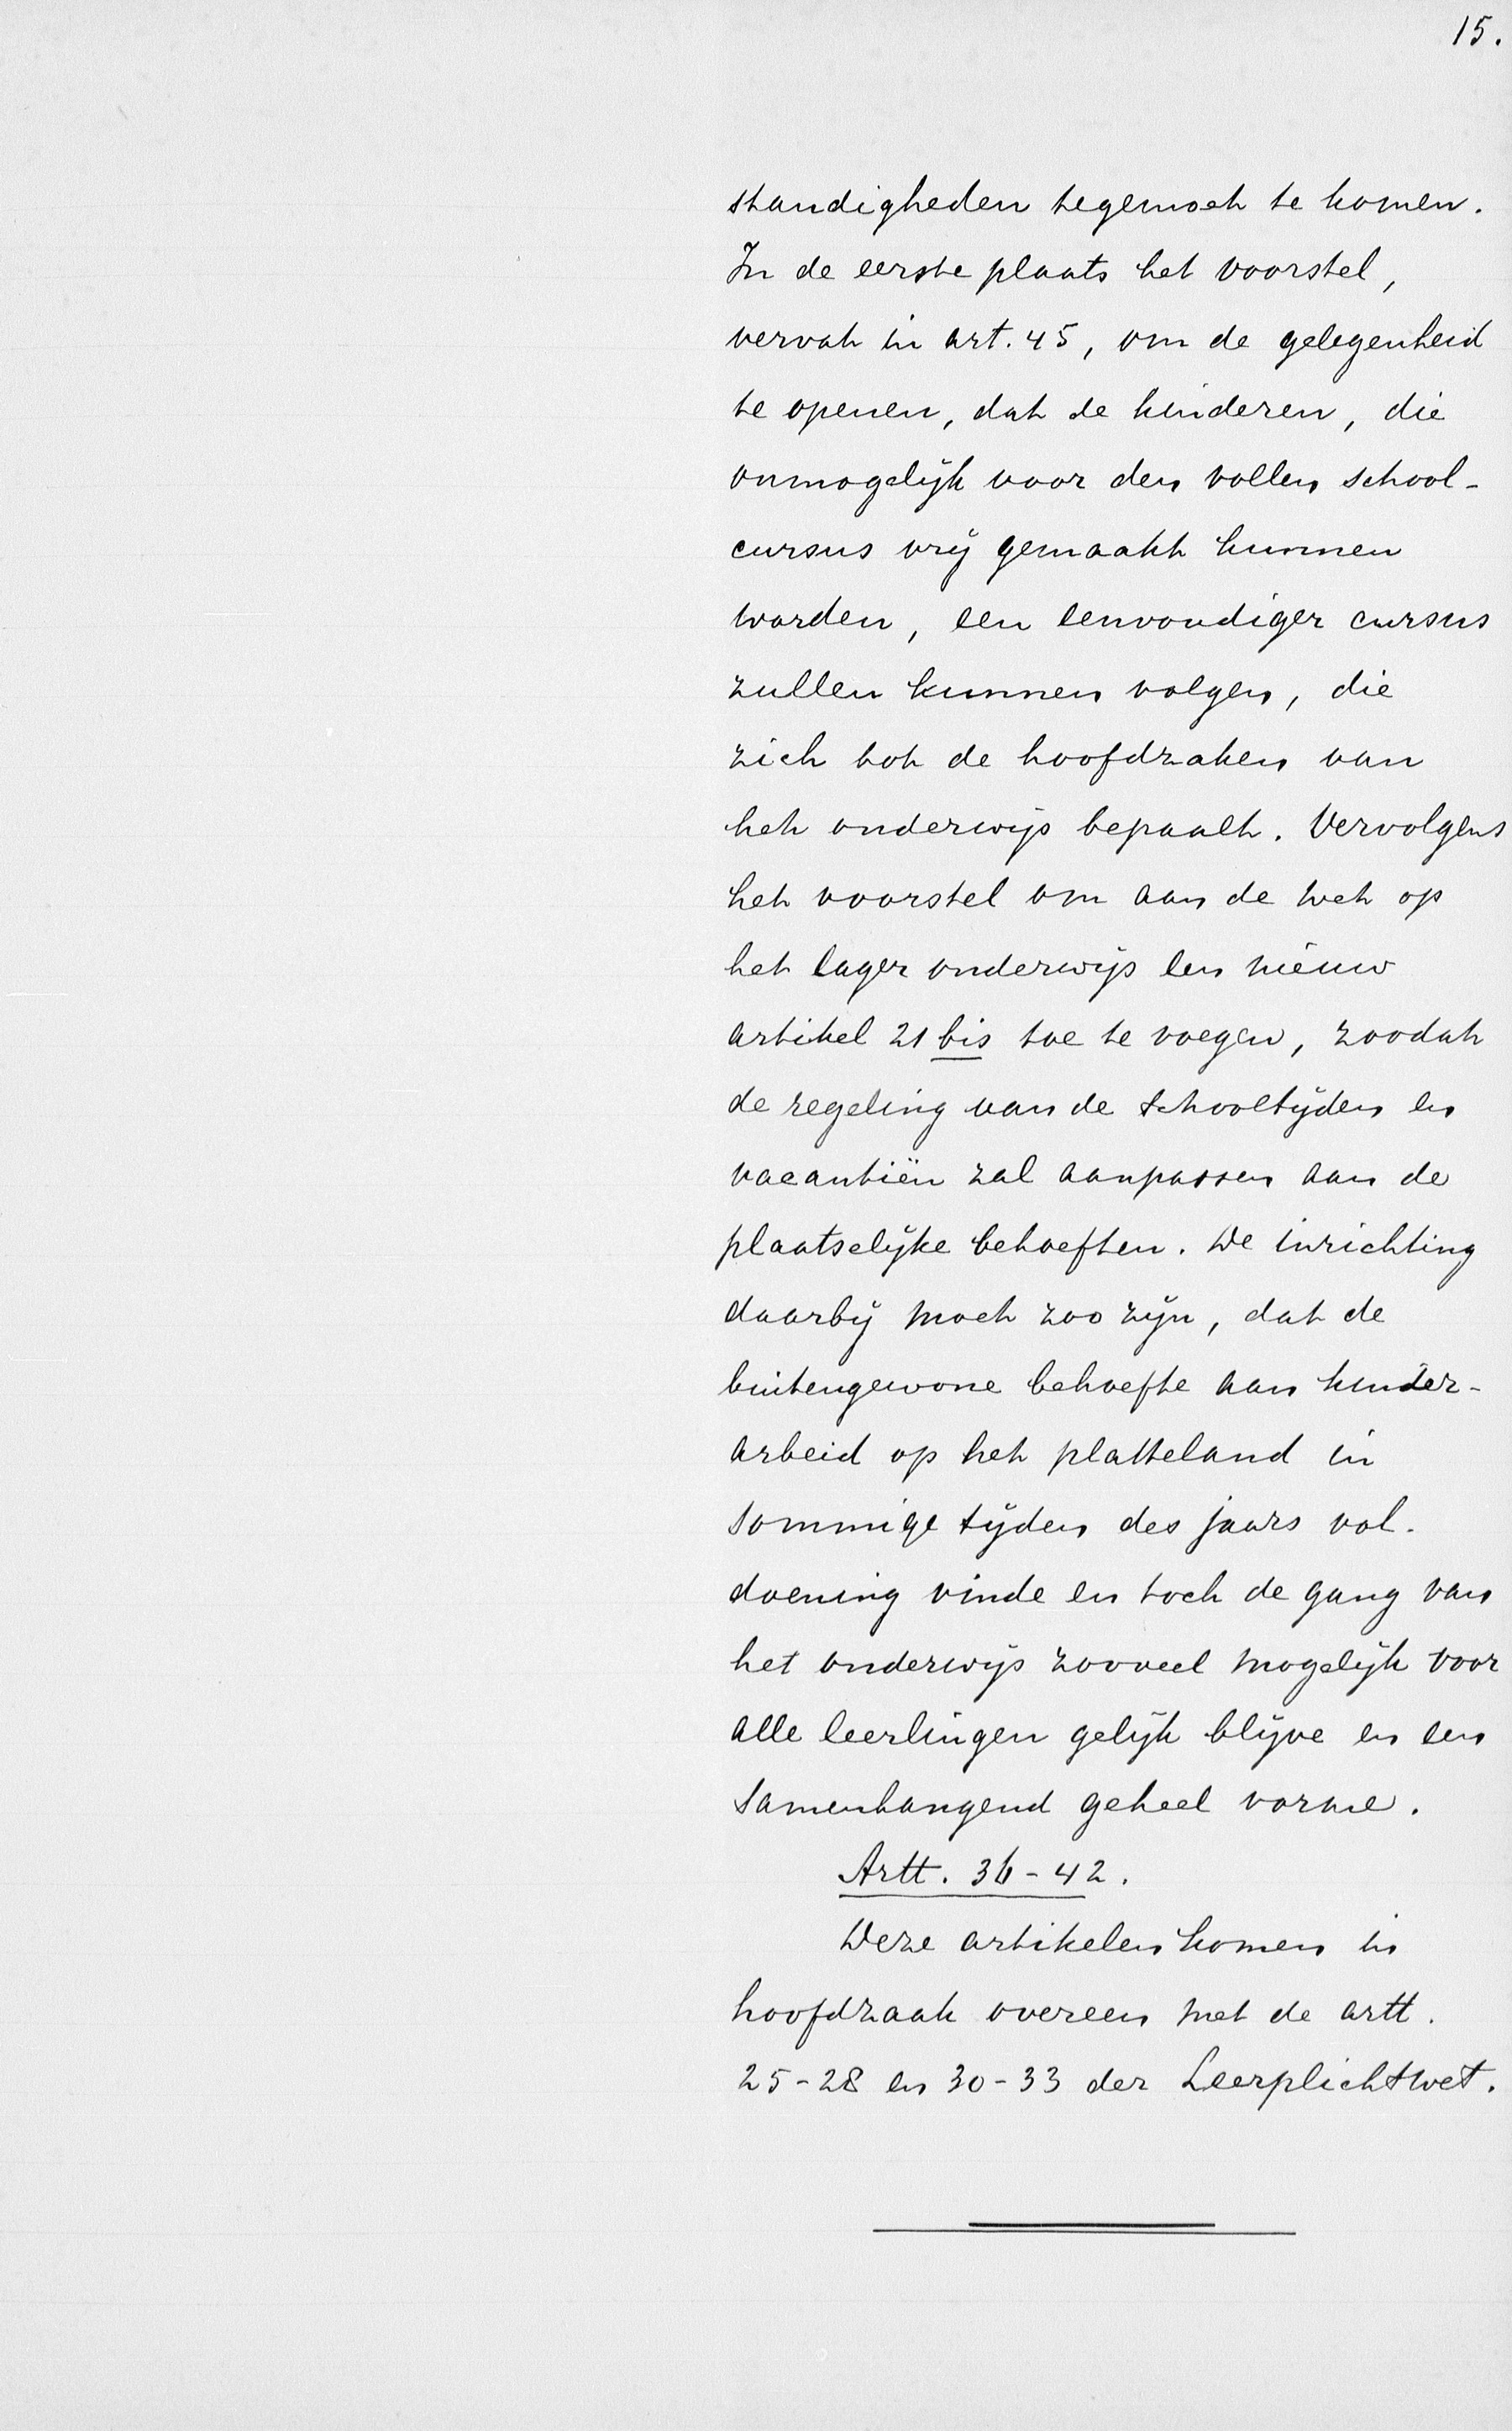 15.
standigheden tegemoet te komen.
In de eerste plaats het voorstel,
vervat in art. 45, om de gelegenheid
te openen, dat de kinderen, die
onmogelijk voor den vollen school-
cursus vrij gemaakt kunnen
worden, een eenvoudiger cursus
zullen kunnen volgen, die
zich tot de hoofdzaken van
het onderwijs bepaalt. Vervolgens
het voorstel om aan de wet op
het lager onderwijs een nieuw
artikel 21 bis toe te voegen, zoodat
de regeling van de schooltijden en
vacantiën zal aanpassen aan de
plaatselijke behoeften. De inrichting
daarbij moet zoo zijn, dat de
buitengewone behoefte aan kinder-
arbeid op het platteland in
sommige tijden des jaars vol-
doening vinde en toch de gang van
het onderwijs zooveel mogelijk voor
alle leerlingen gelijk blijve en een
samenhangend geheel vorme.
Artt. 36-42.
Deze artikelen komen in
hoofdzaak overeen met de artt.
25-28 en 30-33 der Leerplichtwet.